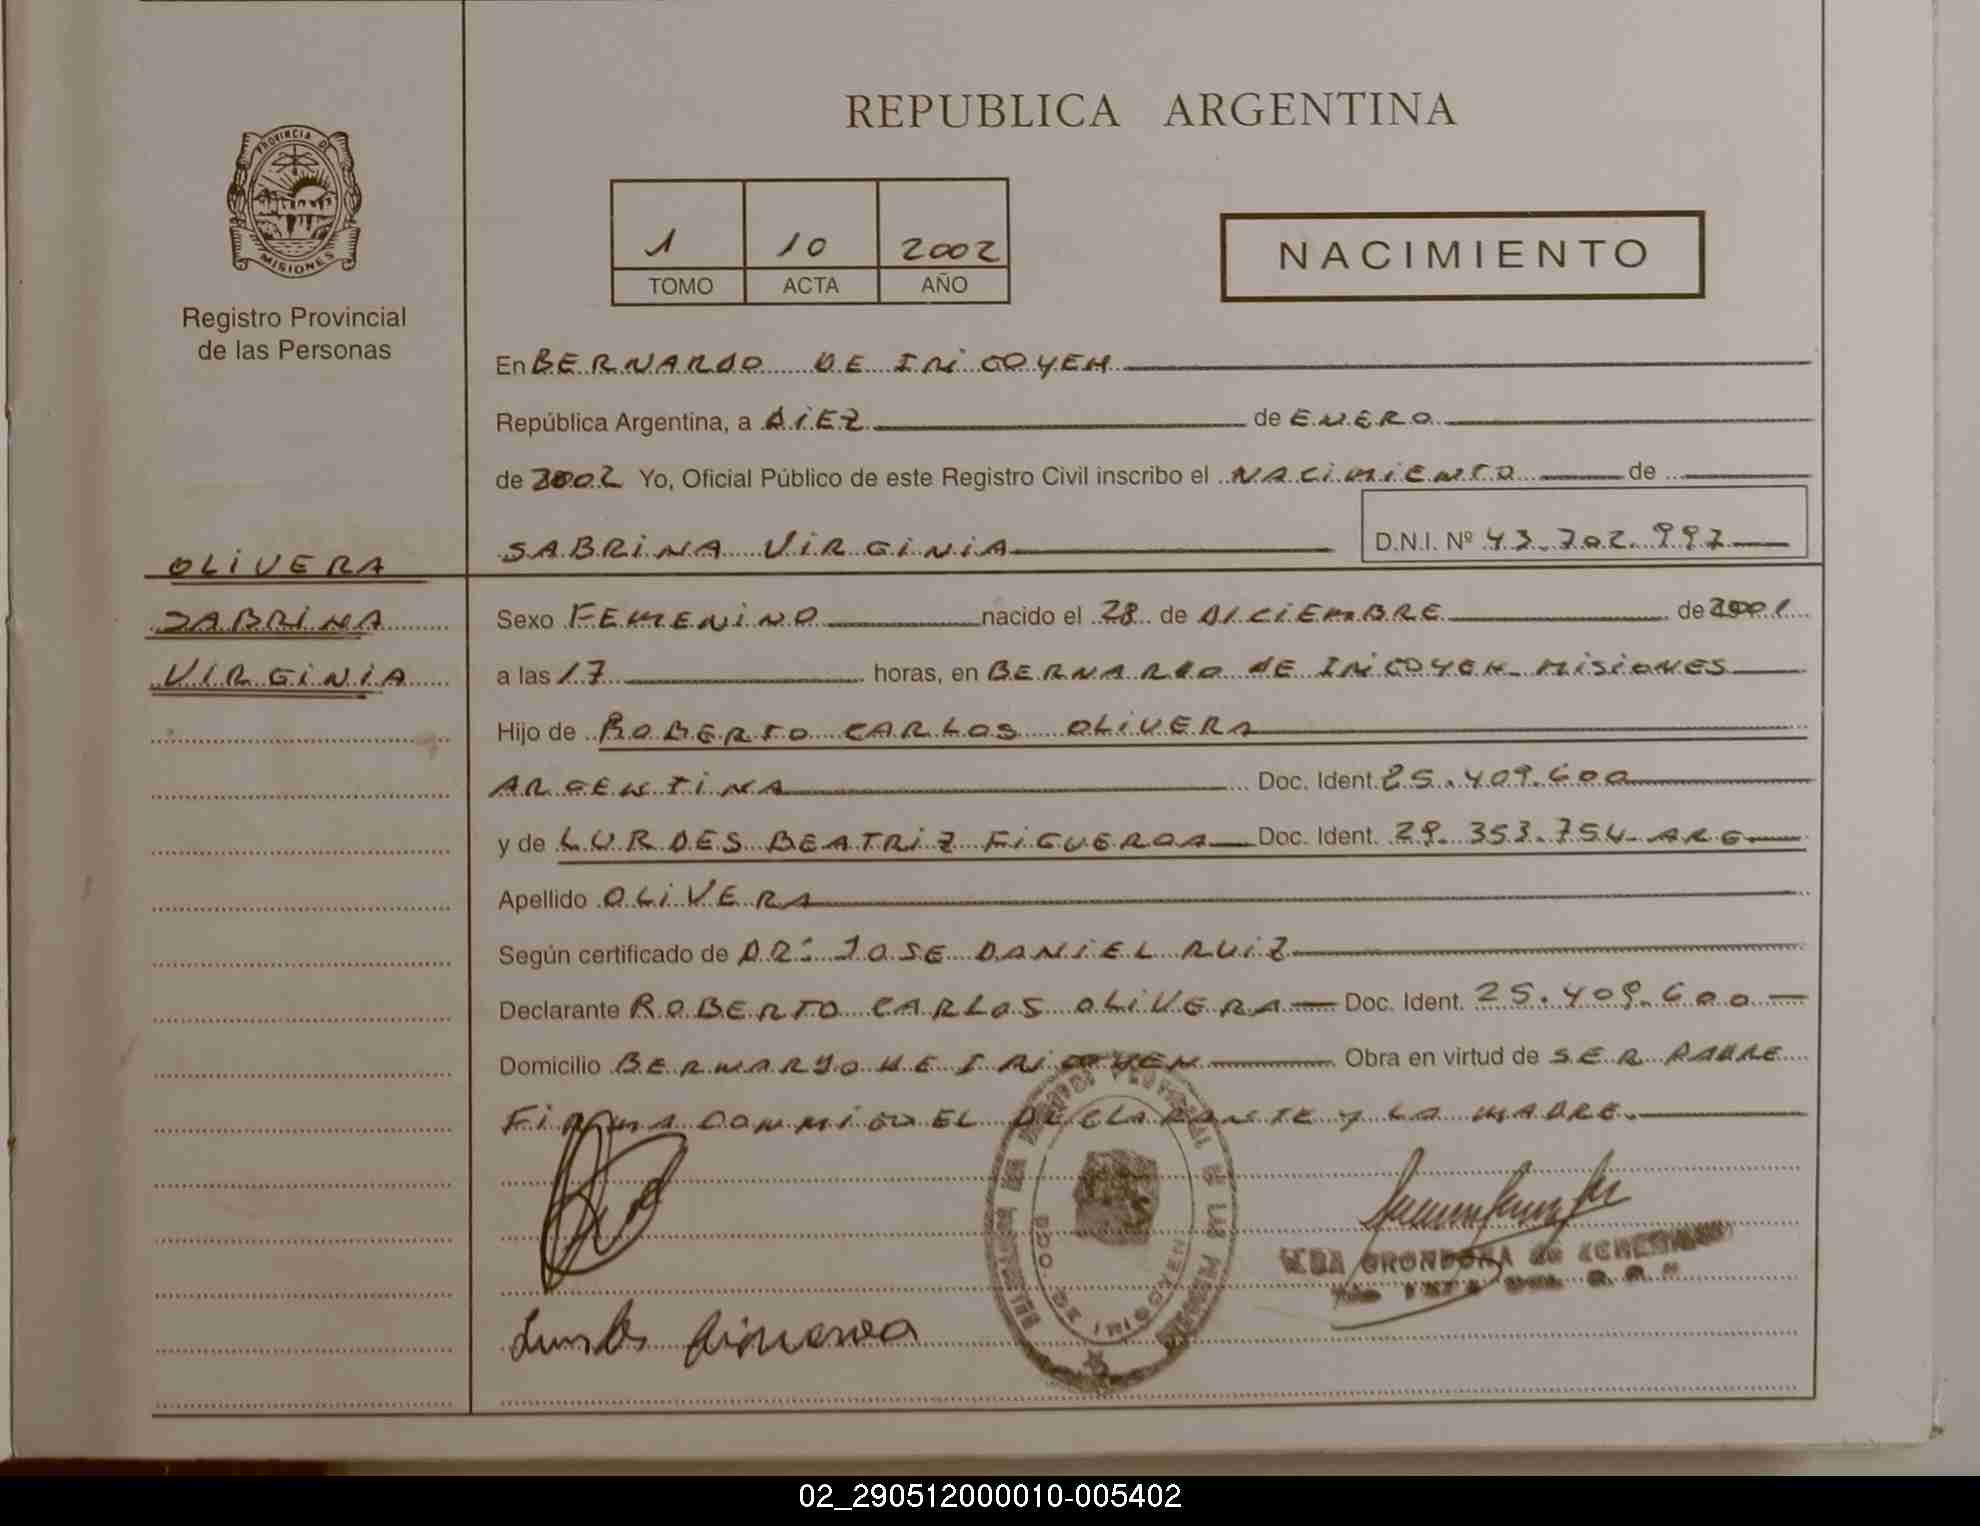 REPUBLICA ARGENTINA
PROVINCIA DE
MISIONES
Registro Provincial
de las Personas
1 10 2002
TOMO ACTA AÑO
NACIMIENTO
En BERNARDO DE IRIGOYEN
República Argentina, a DIEZ de ENERO
de 2002 Yo, Oficial Público de este Registro Civil inscribo el NACIMIENTO de
SABRINA VIRGINIA D.N.I. Nº 43.702.997
OLIVERA
SABRINA
VIRGINIA
Sexo FEMENINO nacido el 28 de DICIEMBRE de 2001
a las 17 horas, en BERNARDO DE IRIGOYEN - MISIONES
Hijo de ROBERTO CARLOS OLIVERA
ARGENTINA Doc. Ident. 25.409.600
y de LURDES BEATRIZ FIGUEROA Doc. Ident. 29.353.754 - ARG.
Apellido OLIVERA
Según certificado de DR: JOSE DANIEL RUIZ
Declarante ROBERTO CARLOS OLIVERA Doc. Ident. 25.409.600
Domicilio BERNARDO DE IRIGOYEN Obra en virtud de SER PADRE
FIRMA CONMIGO EL DECLARANTE Y LA MADRE.
DE IRIGOYEN
02_290512000010-005402